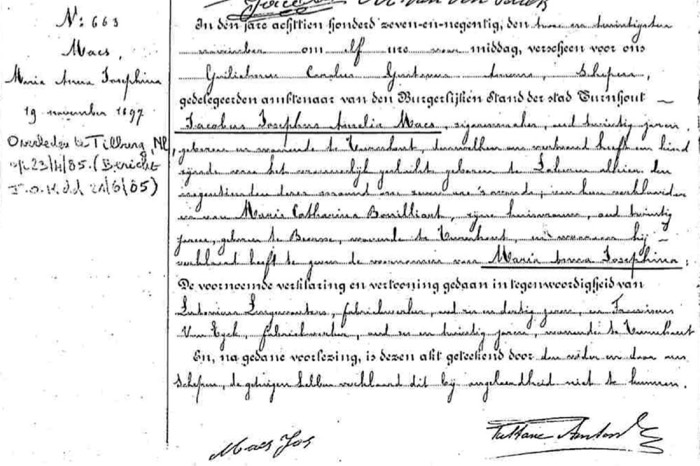 N: 663
Maes,
Maria Anna Josephina
19 november 1897
Overleden te Tilburg NL
op 23/4/85. (Bericht
21/6/85)
In den jare achttien honderd zeven-en-negentig, den twee en twintigsten
november om elf ure voor middag, verscheen voor ons
Carolus Schepen,
gedelegeerden ambtenaar van den Burgerlijken Stand der stad Turnhout
Jacobus Josephus Aurelia Maes, sigarenmaker, oud twintig jaren,
geboren en wonende te Turnhout, denwelken ons vertoond heeft een kind
zijnde van het vrouwelijk geslacht geboren te alhier den
negentienden dezer maand om zeven ure 's avonds, van hem verklaarder
en van Maria Catharina Bouilliart, zijne huisvrouw, oud twintig
jaren, geboren te Beerse, wonende te Turnhout, en waaraan hij
verklaard heeft te geven de voornamen van Maria Anna Josephina;
De voornoemde verklaring en vertooning gedaan in tegenwoordigheid van
Ludovicus fabriekwerker, oud en dertig jaren, en Franciscus
Van Eyck, fabriekwerker, oud en twintig jaren, wonende te Turnhout
En, na gedane voorlezing, is dezen akt geteekend door den vader en door ons
Schepen, de getuigen hebben verklaard dit bij ongeleerdheid niet te kunnen.
Maes Jos